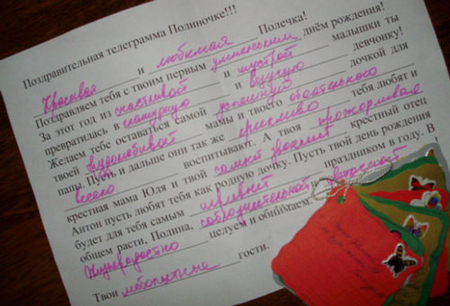 Поздравительная телеграмма Полиночке!!!
Красивая и любимая Полечка!
Поздравляем тебя с твоим первым уматненьким днём рождения!
За этот год из счастливой и шустрой малышки ты
превратилась в гламурную и будущую девчонку!
Желаем тебе оставаться самой дочкой для
твоей вздолбанной мамы и твоего обаятельного
папы. Пусть и дальше они так же красиво тебя любят и
весело воспитывают. А твоя прожорливая
крестная мама Юля и твой самый крестный отец
Антон пусть любят тебя как родную дочку. Пусть твой день рождения
будет для тебя самым игривым праздником в году. В
общем расти, Полина,
Жизнерадостно целуем и обнимаем.
Твои любопытные гости.